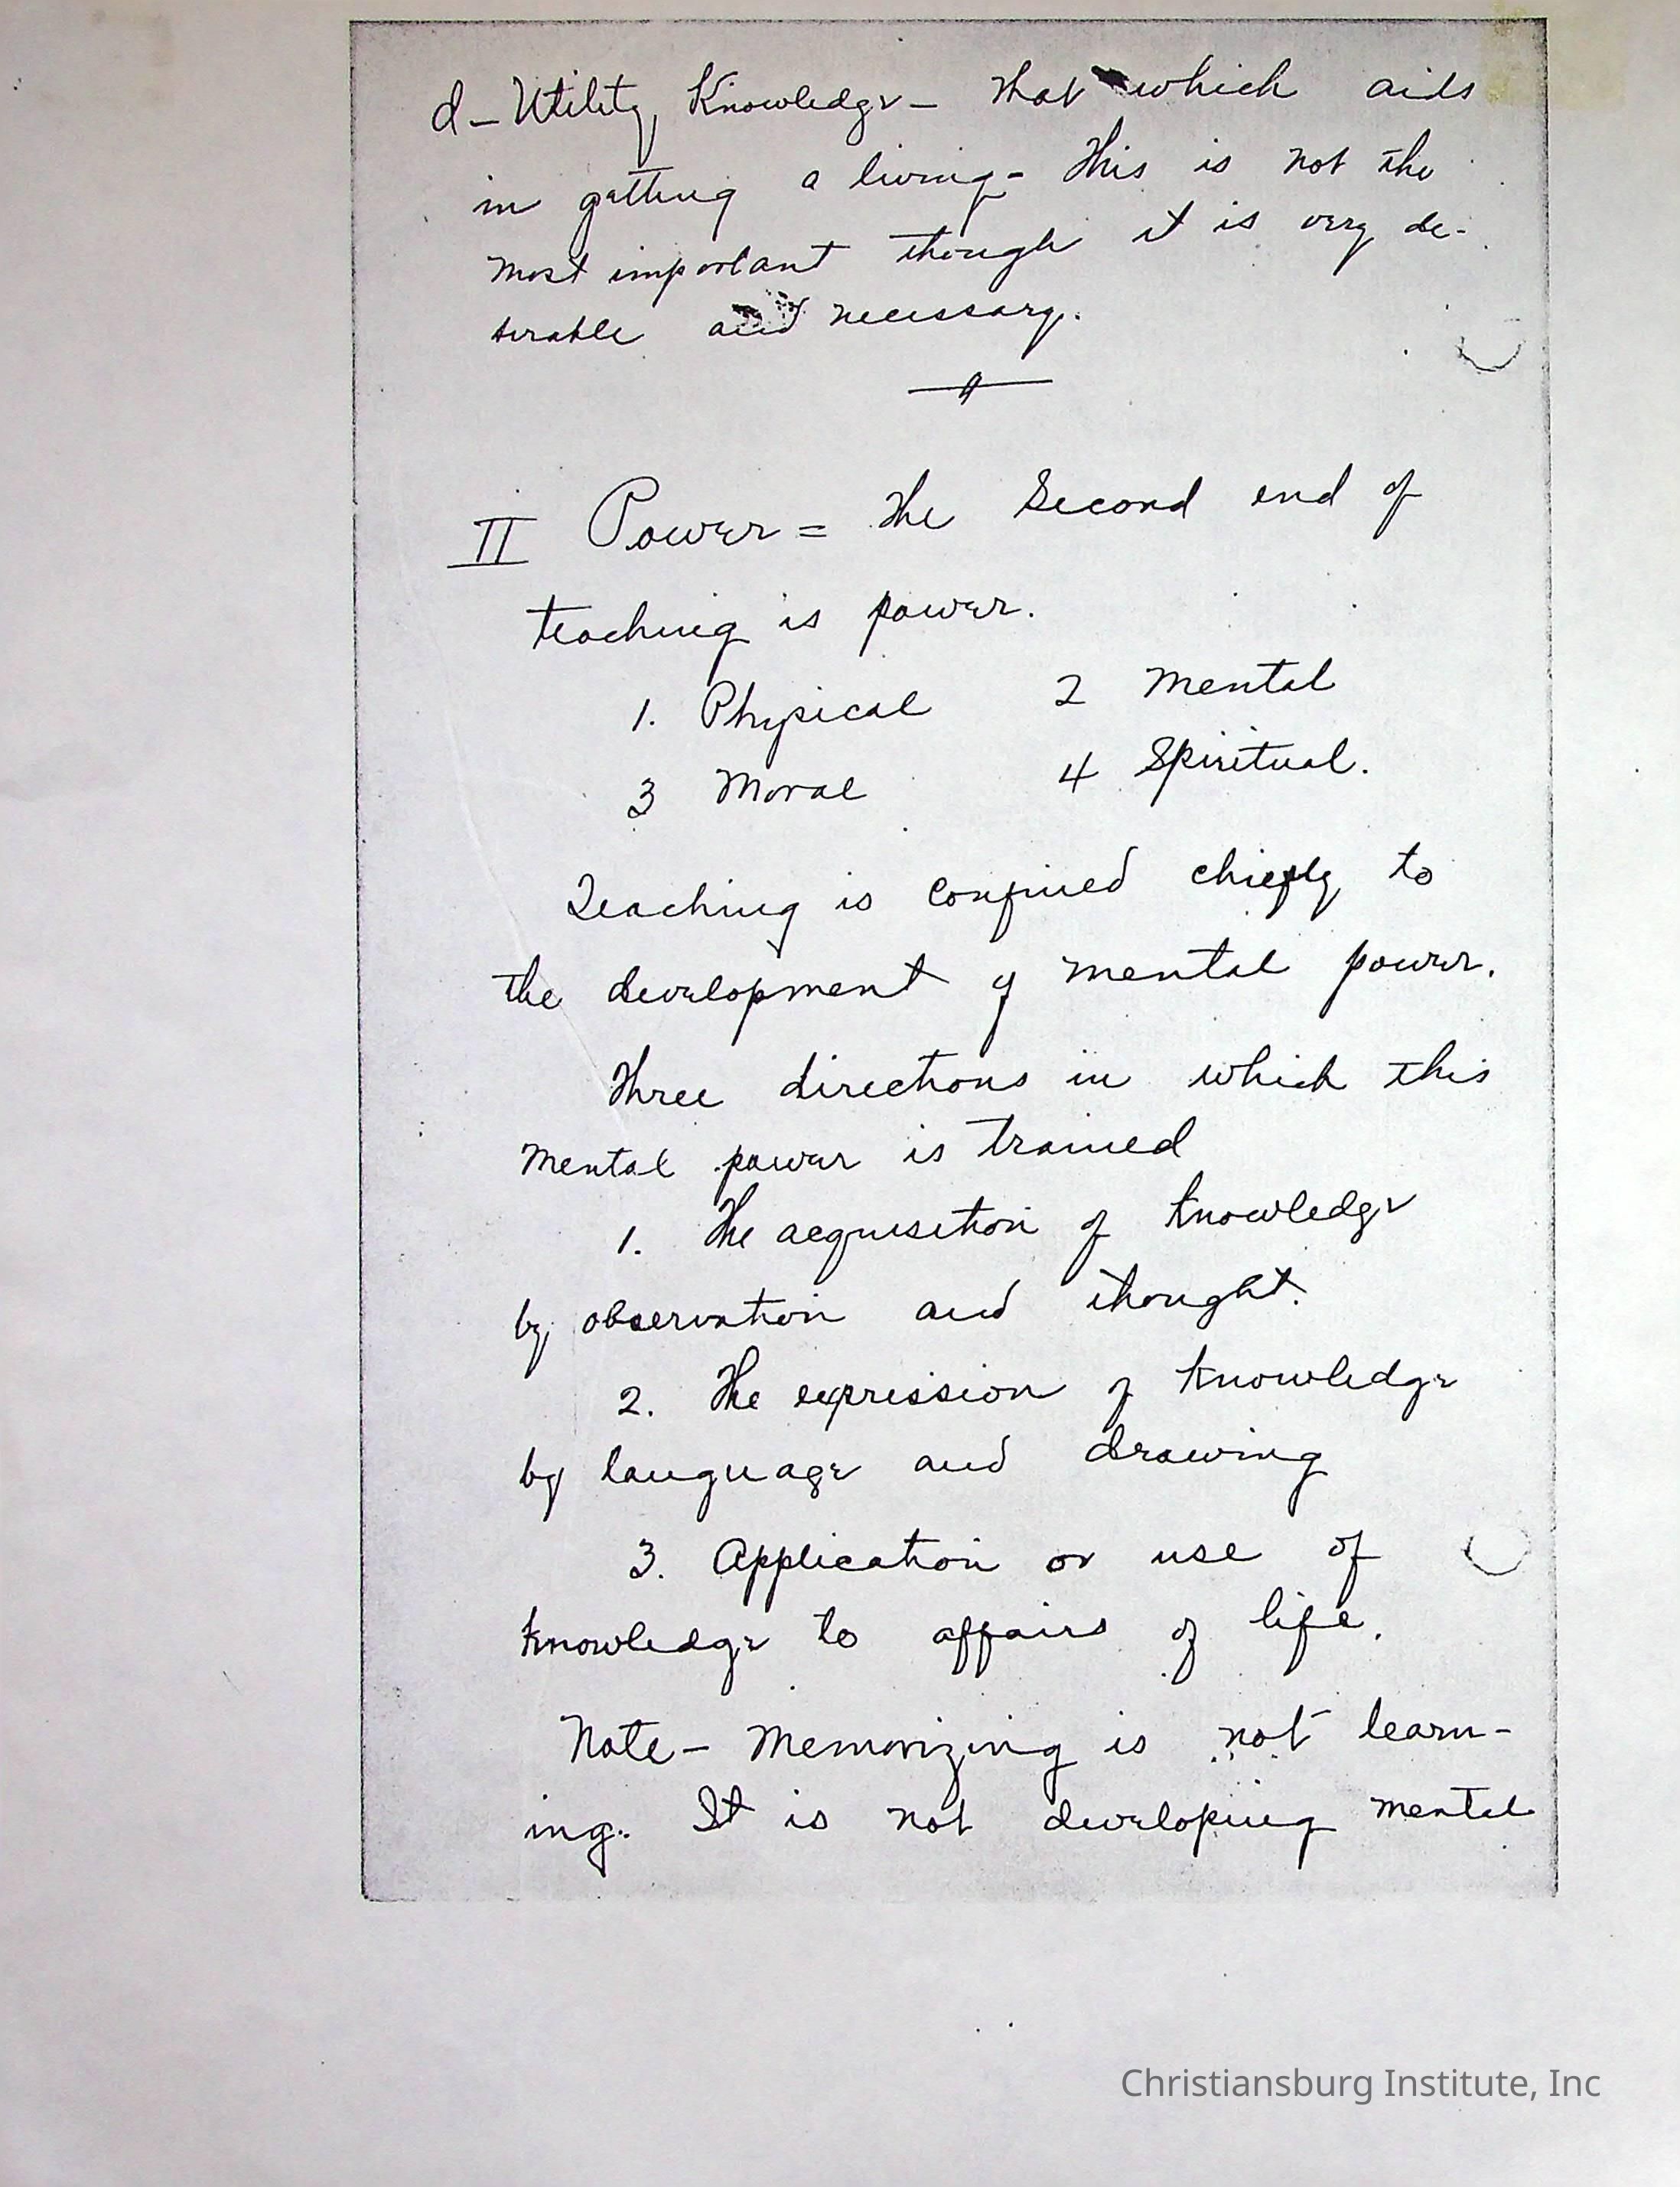 d - Utility Knowledge - that which aids
in getting a living - This is not the
most important though it is very de-
sirable and necessary.
II Power = The Second end of
teaching is power.
1. Physical 2 Mental
3 Moral 4 Spiritual.
Teaching is confined chiefly to
the development of mental power.
Three directions in which this
mental power is trained
1. The acquisition of knowledge
by observation and thought.
2. The expression of knowledge
by language and drawing
3. Application or use of
knowledge to affairs of life.
Note - Memorizing is not learn-
ing. It is not developing mental
Christiansburg Institute, Inc